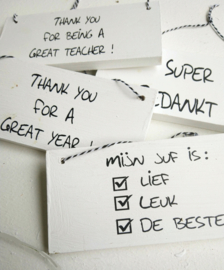 THANK YOU
FOR BEING A
GREAT TEACHER!
SUPER
EDANKT
THANK YOU
FOR A
GREAT YEAR!
mijn JUF is:
LIEF
LEUK
DE BESTE